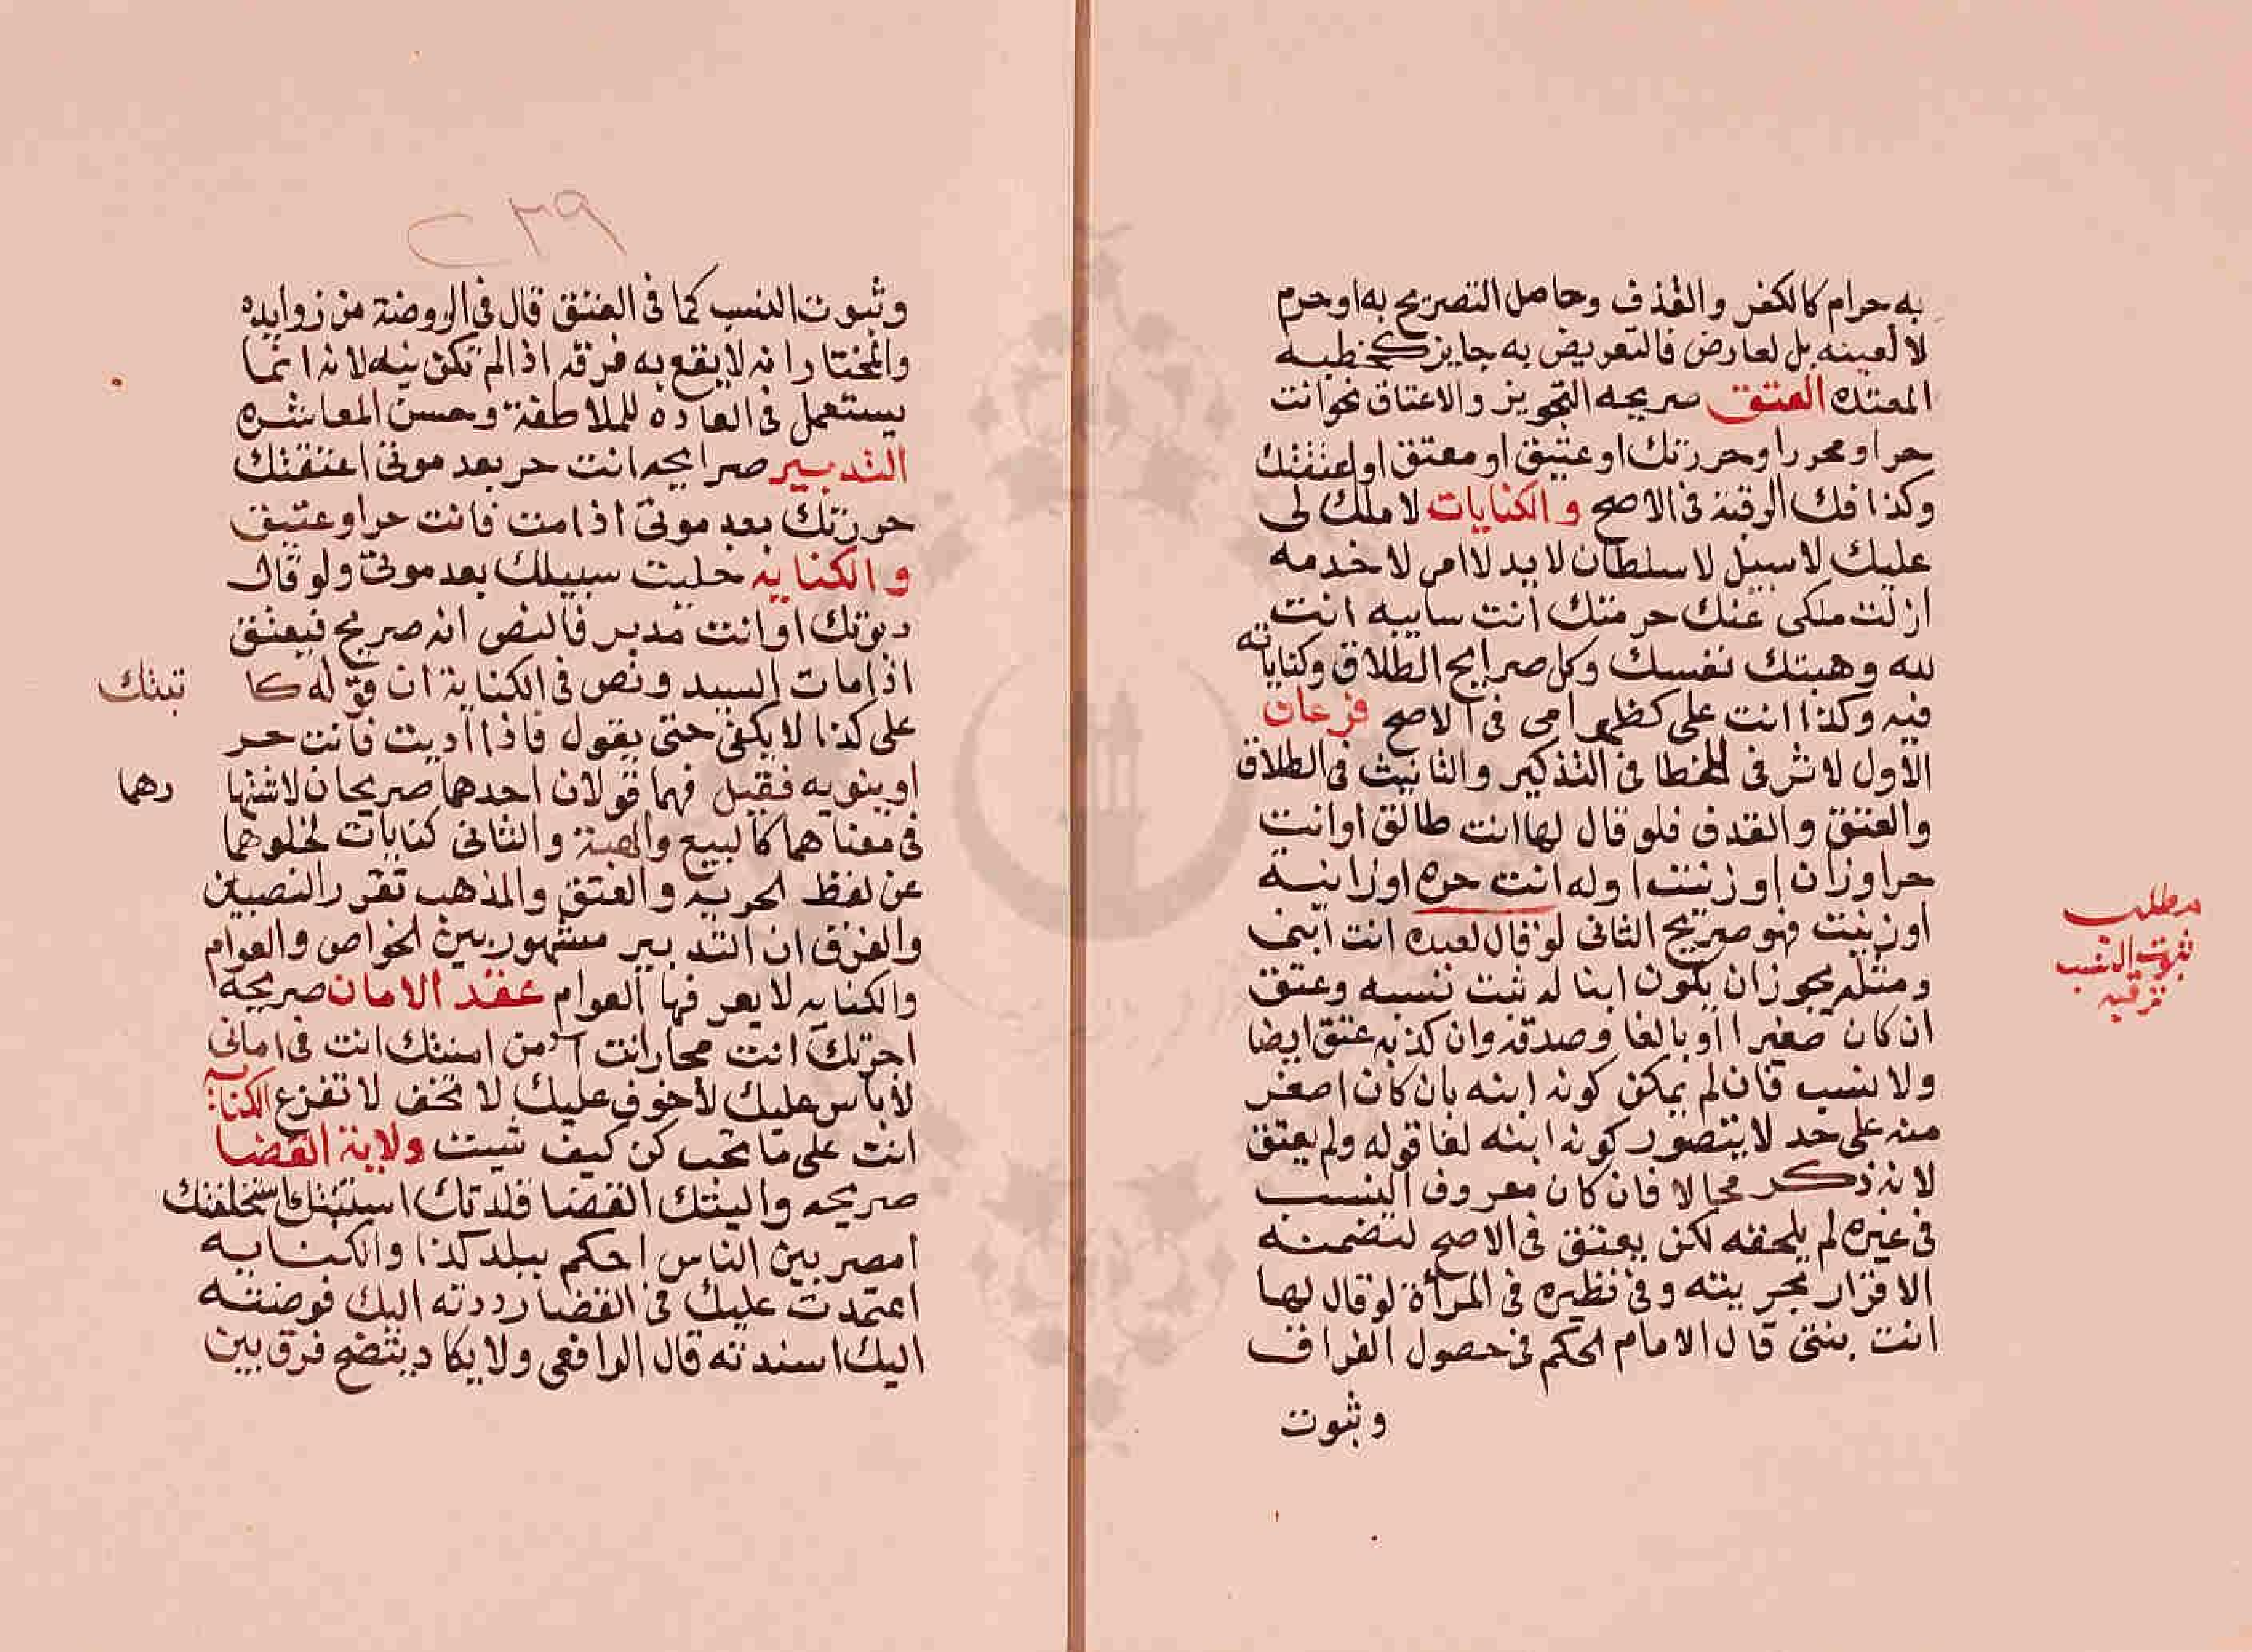 به حرام كالكفر والقذف وحاصل التصريح به او حرم
لا لعينه بل لعارض فالتعريض به جايز كخطبه
المعتده العتق صريحه التحرير والاعتاق نحو انت
حر او محرر او حررتك او عتيق او معتق او اعتقتك
وكذا فك الرقبة في الاصح والكنايات لا ملك لى
عليك لا سبيل لا سلطان لا يد لا امر لا خدمه
ازلت ملكى عنك حرمتك انت سايبه انت
لله وهبتك نفسك وكل صرايح الطلاق وكناياته
فيه وكذا انت على كظهر امى فى الاصح فرعان
الاول لا اثر فى للخطا فى التذكير والتانيث فى الطلاق
والعتق والقدف فلو قال لها انت طالق او انت
حر او زان او زنيت اوله انت حره او زانيه
او زنيت فهو صريح الثانى لو قال لعبده انت ابنى
ومثله يجوز ان يكون ابنا له ثبت نسبه وعتق
ان كان صغيرا او بالغا وصدقه وان كذبه عتق ايضا
ولا نسب فان لم يمكن كونه ابنه بان كان اصغر
منه على حد لا يتصور كونه ابنه لغا قوله ولم يعتق
لانه ذكر محالا فان كان معروف النسب
فى غيره لم يلحقه لكن يعتق فى الاصح لتضمنه
الاقرار بحريته وفى نظيره فى المرأة لو قال لها
انت بنتى قال الامام الحكم فى حصول الفراق
وثبوت
مطلب
ثبوت النسب
٢٣٩
وثبوت النسب كما فى العتق قال فى الروضة من زوايده
والمختار انه لا يقع به فرقه اذا لم تكن نيه لانه انما
يستعمل فى العاده للملاطفة وحسن المعاشره
التدبير صرايحه انت حر بعد موتى اعتقتك
حررتك بعد موتى اذا مت فانت حر او عتيق
والكنايه خليت سبيلك بعد موتى ولو قال
دبرتك او انت مدبر فالنص انه صريح فيعتق
اذا مات السيد ونص فى الكنابة ان قوله كا تبتك
على كذا لا يكفى حتى يقول فاذا اديت فانت حر
او ينويه فقيل فهما قولان احدهما صريحان لاشتها رهما
فى معناهما كالبيع والهبة والثانى كنايات لخلوهما
عن لفظ الحرية والعتق والمذهب تقرر النصين
والفرق ان التدبير مشهور بين الخواص والعوام
والكنايه لا يعرفها العوام عقد الامان صريحه
اجرتك انت مجار انت آمن امنتك انت فى امانى
لا باس عليك لا خوف عليك لا تخف لا تفزع الكنايه
انت على ما تحب كن كيف شيت ولاية القضا
صريحه وليتك القضا قلدتك استنبتك استخلفتك
امصر بين الناس احكم ببلد كذا والكنايه
اعتمدت عليك فى القضا رددته اليك فوضته
اليك اسندته قال الرافعى ولا يكاد يتضح فرق بين